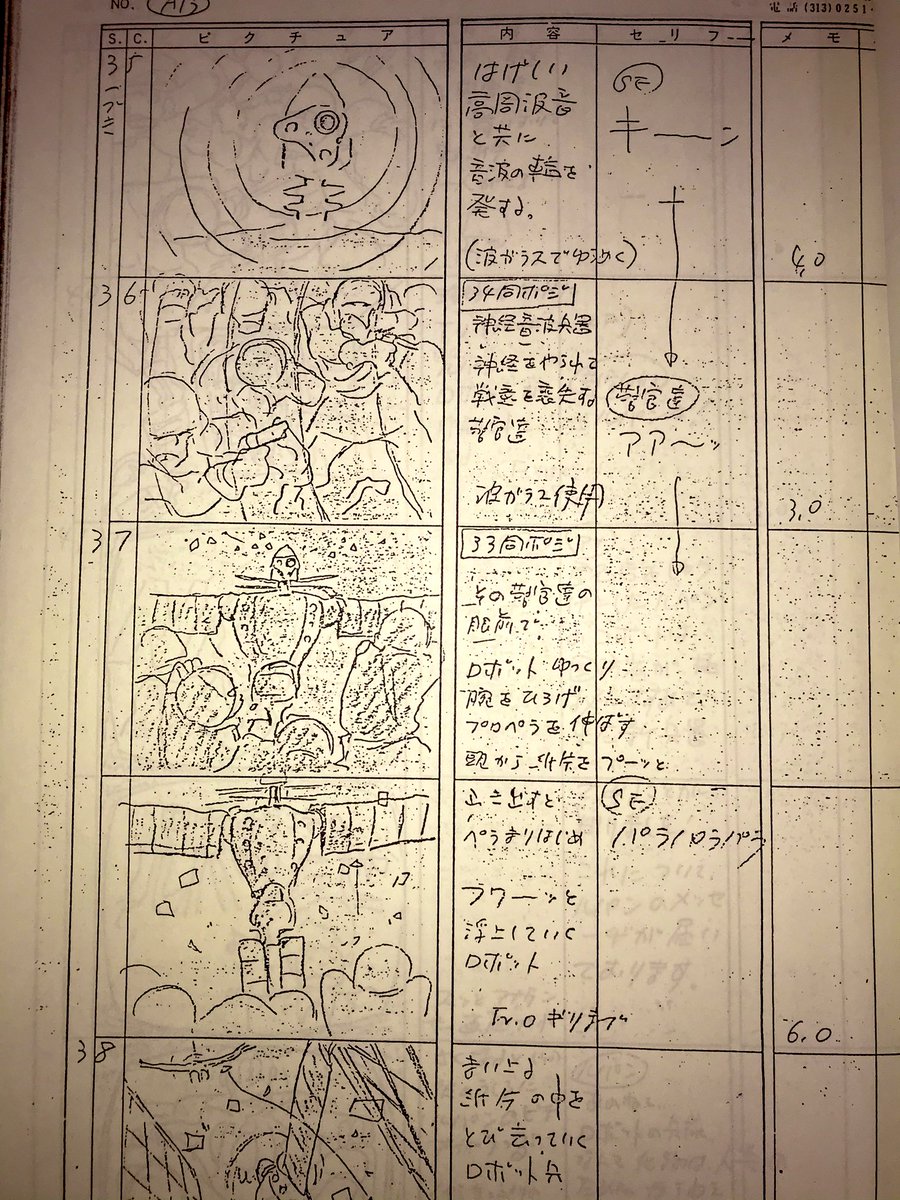 NO.
電話(313)0251
S. C. ピクチュア 内容 セリフ メモ
35
つづき
はげしい
高周波音
と共に
音波の輪を
発する。
(波ガラスでゆらめく)
SE
キーーン
4,0
36
34同ポジ
神経音波兵器
神経をやられて
戦意を喪失する
警官達
波ガラス使用
警官達
アア〜ッ
3,0
37
33同ポジ
その警官達の
眼前で
ロボットゆっくり
腕をひろげ
プロペラを伸ばす
頭から紙片をプーッと
ふき出すと
ペラまわりはじめ
フワーッと
浮上していく
ロボット
Fr.O ぎりまで
SE
バラバラバラ
6,0
38
まい上る
紙片の中を
とび去っていく
ロボット兵